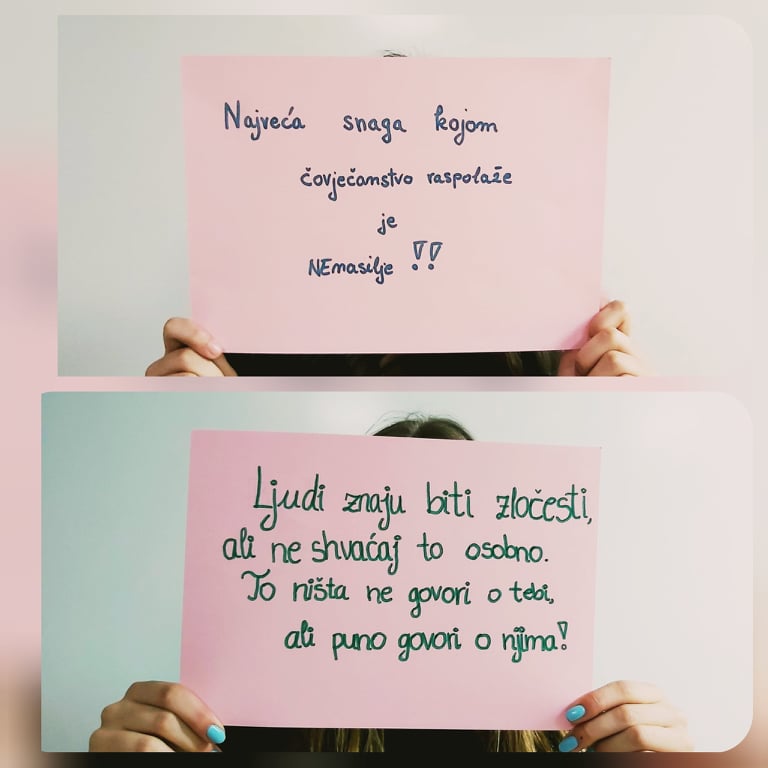 Najveća snaga kojom
čovječanstvo raspolaže
je
NEnasilje !!
Ljudi znaju biti zločesti,
ali ne shvaćaj to osobno.
To ništa ne govori o tebi,
ali puno govori o njima!